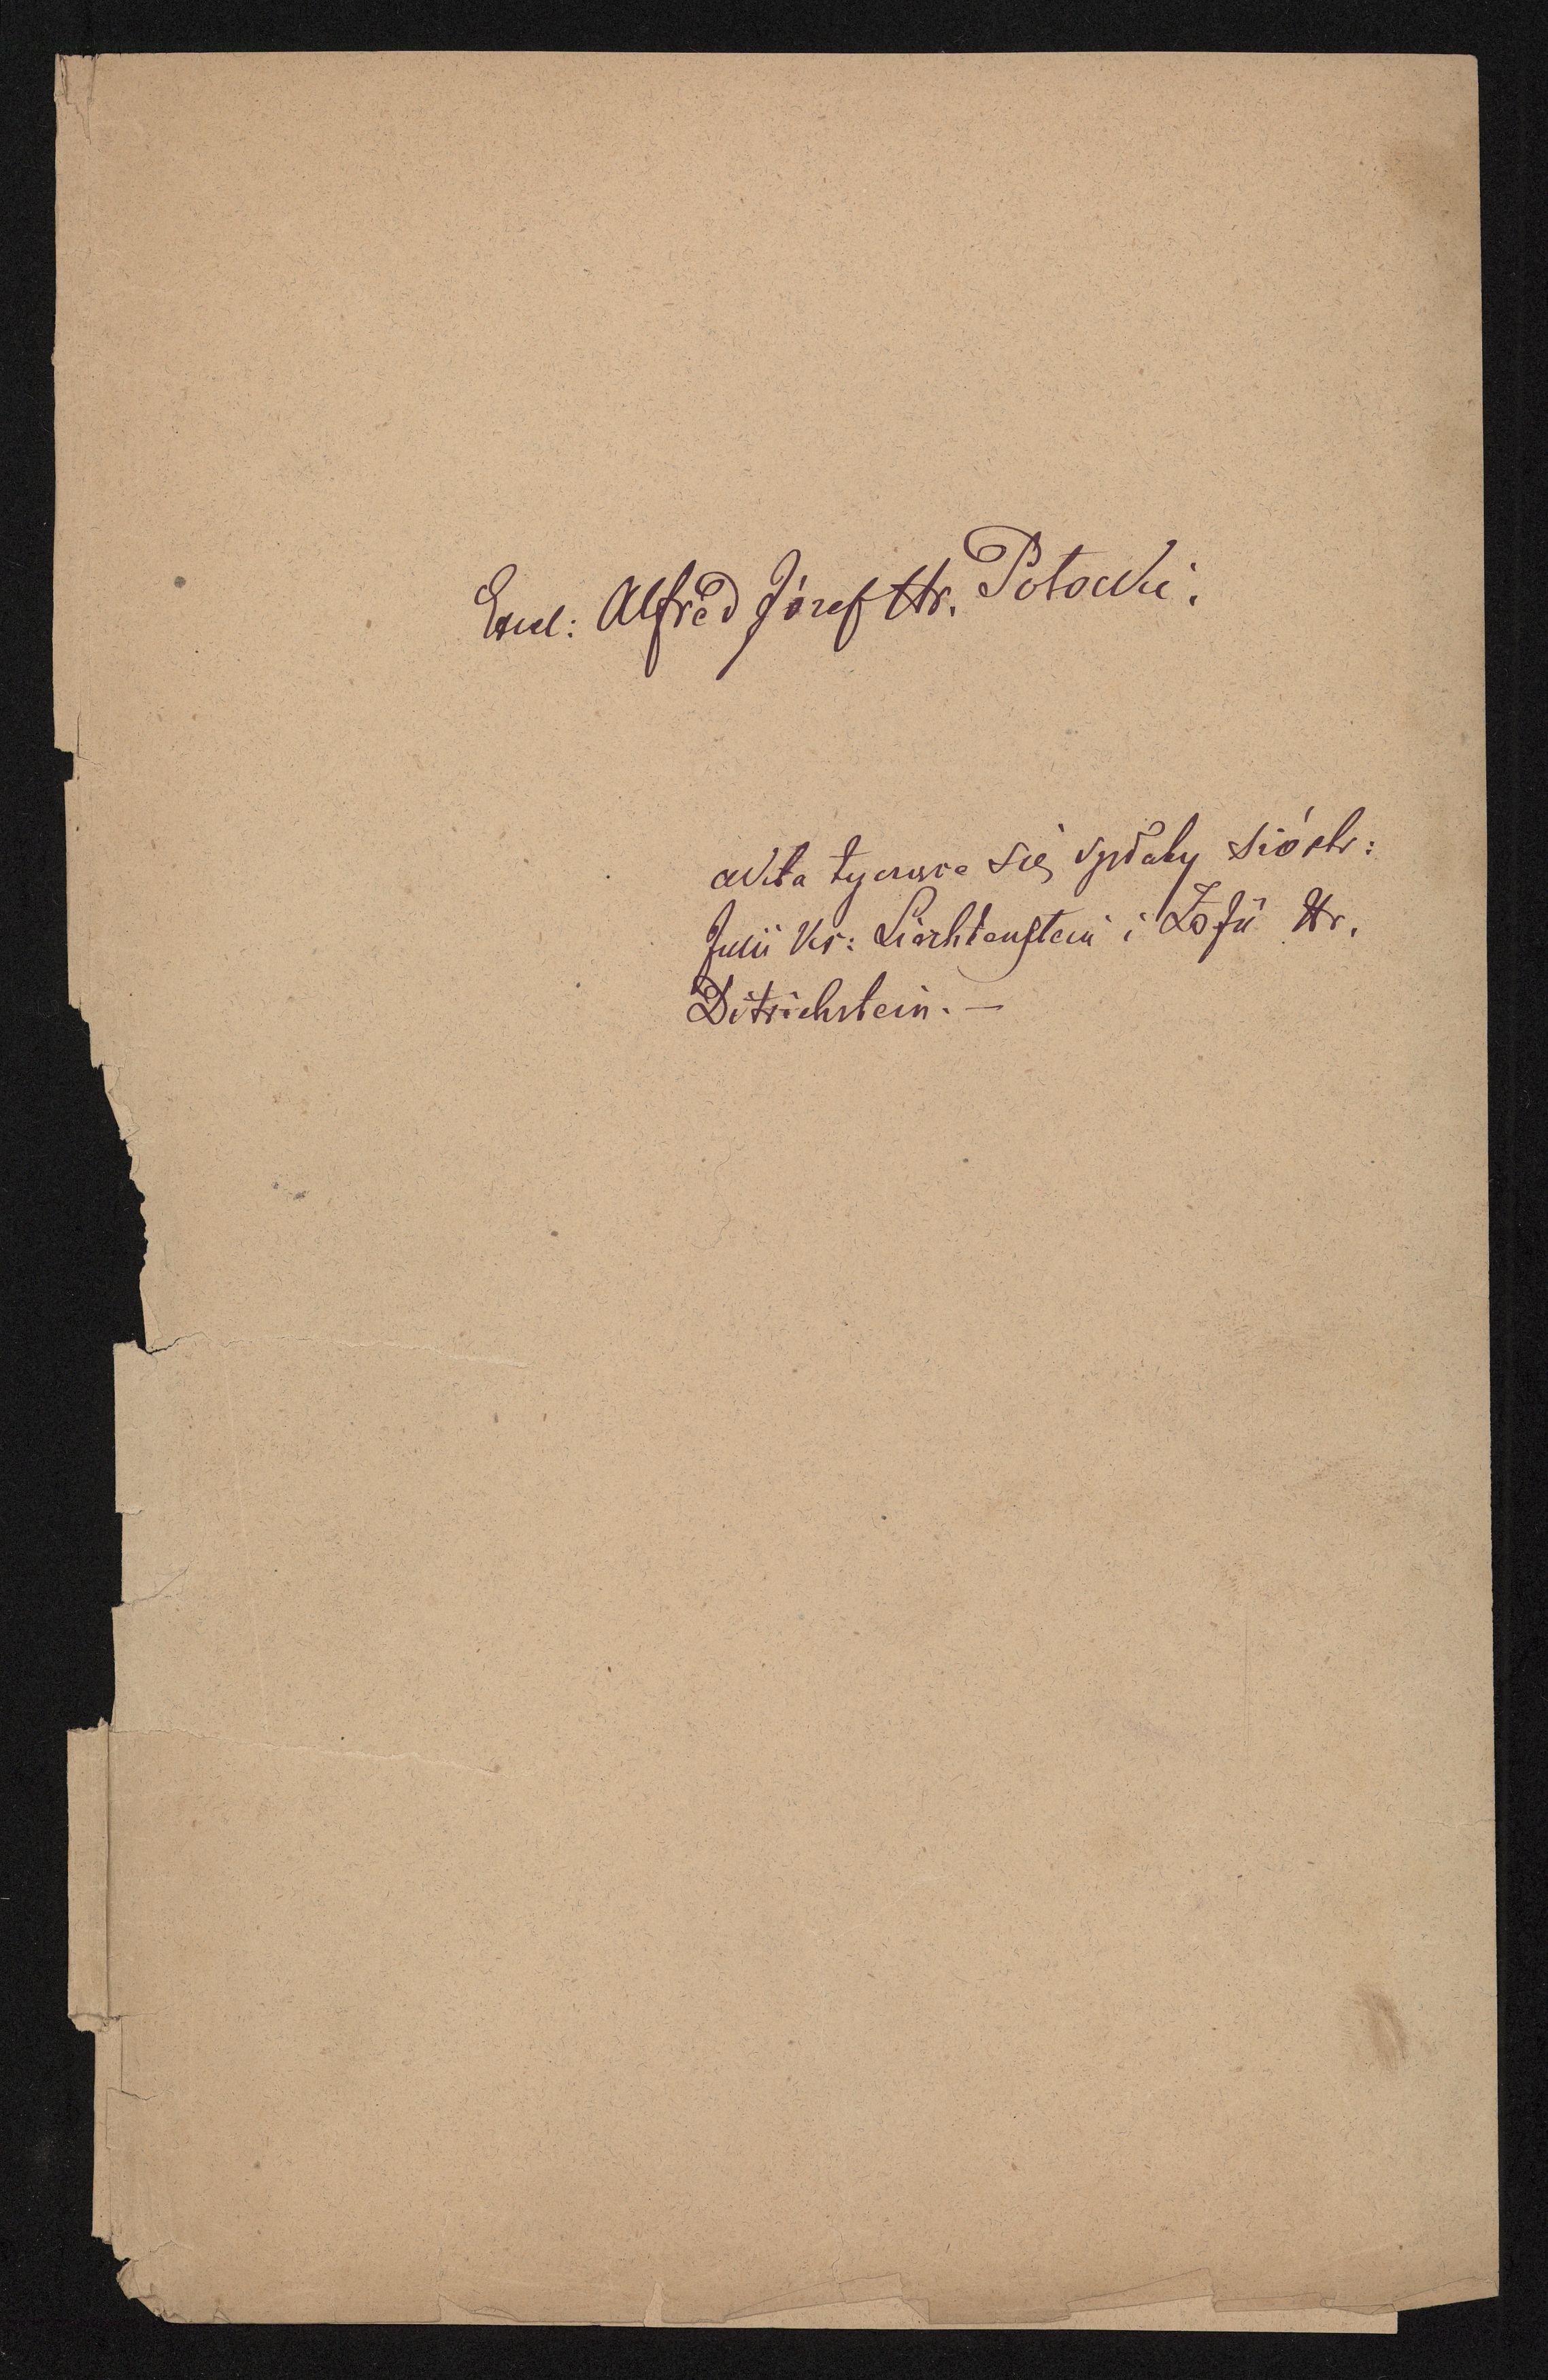 Excel: Alfred Józef Hr. Potocki.
akta tyczące się spłaty sióstr:
Julii Ks: Liechtenstein i Zofii Hr.
Ditrichstein. —